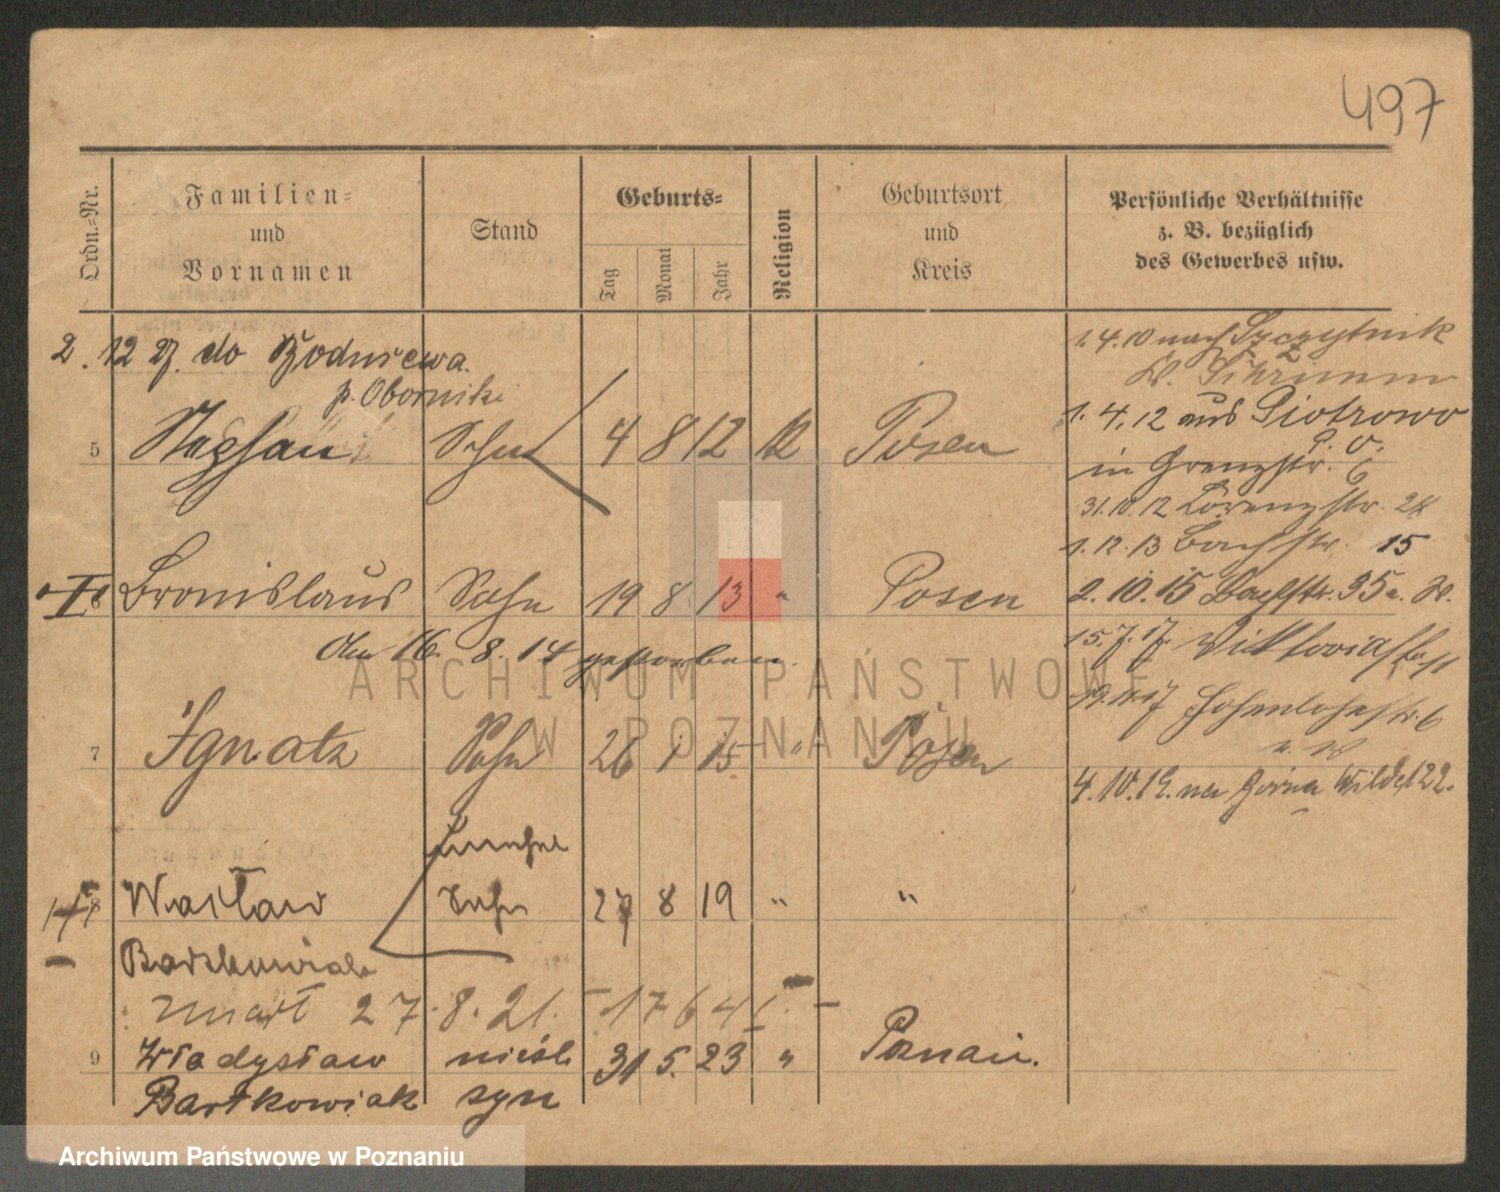 497
Ordn.-Nr.
Familien-
und
Vornamen
Stand
Geburts-
Tag
Monat
Jahr
Religion
Geburtsort
und
Kreis
Persönliche Verhältnisse
z. B. bezüglich
des Gewerbes usw.
2. 12 27. do
p. Oborniki
5 Stephan Sohn 4 8 12 k Posen
6 Bronislaus Sohn 19 8 13 " Posen
den 16. 8. 14 gestorben.
7 Ignatz Sohn 26 1 15 " Posen
8 Wacław Sohn 27 8 19 " "
Bartkowiak
zmarł 27. 8. 21. – 1764
9 Władysław nieśl. 31 5. 23 " Poznań.
Bartkowiak syn
1.4.10 nach Szczytnik
1.4.12 aus Piotrowo
in Grenzstr. 6
31.10.12 Lorenzstr. 28
1.12.13 Bachstr. 15
2.10.15 Bachstr. 35 a. W.
15.7.17. Viktoriastr. 11
19.11.17 Hohenlohestr. 6
4.10.19. na Górna Wilde 122.
ARCHIWUM PAŃSTWOWE
W POZNANIU
Archiwum Państwowe w Poznaniu